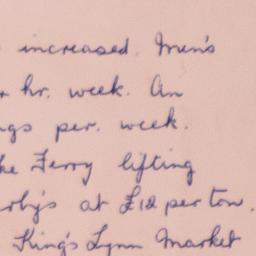 increased. Men's
hr. week. An
per. week.
Ferry lifting
at £12 per ton.
King's Lynn Market